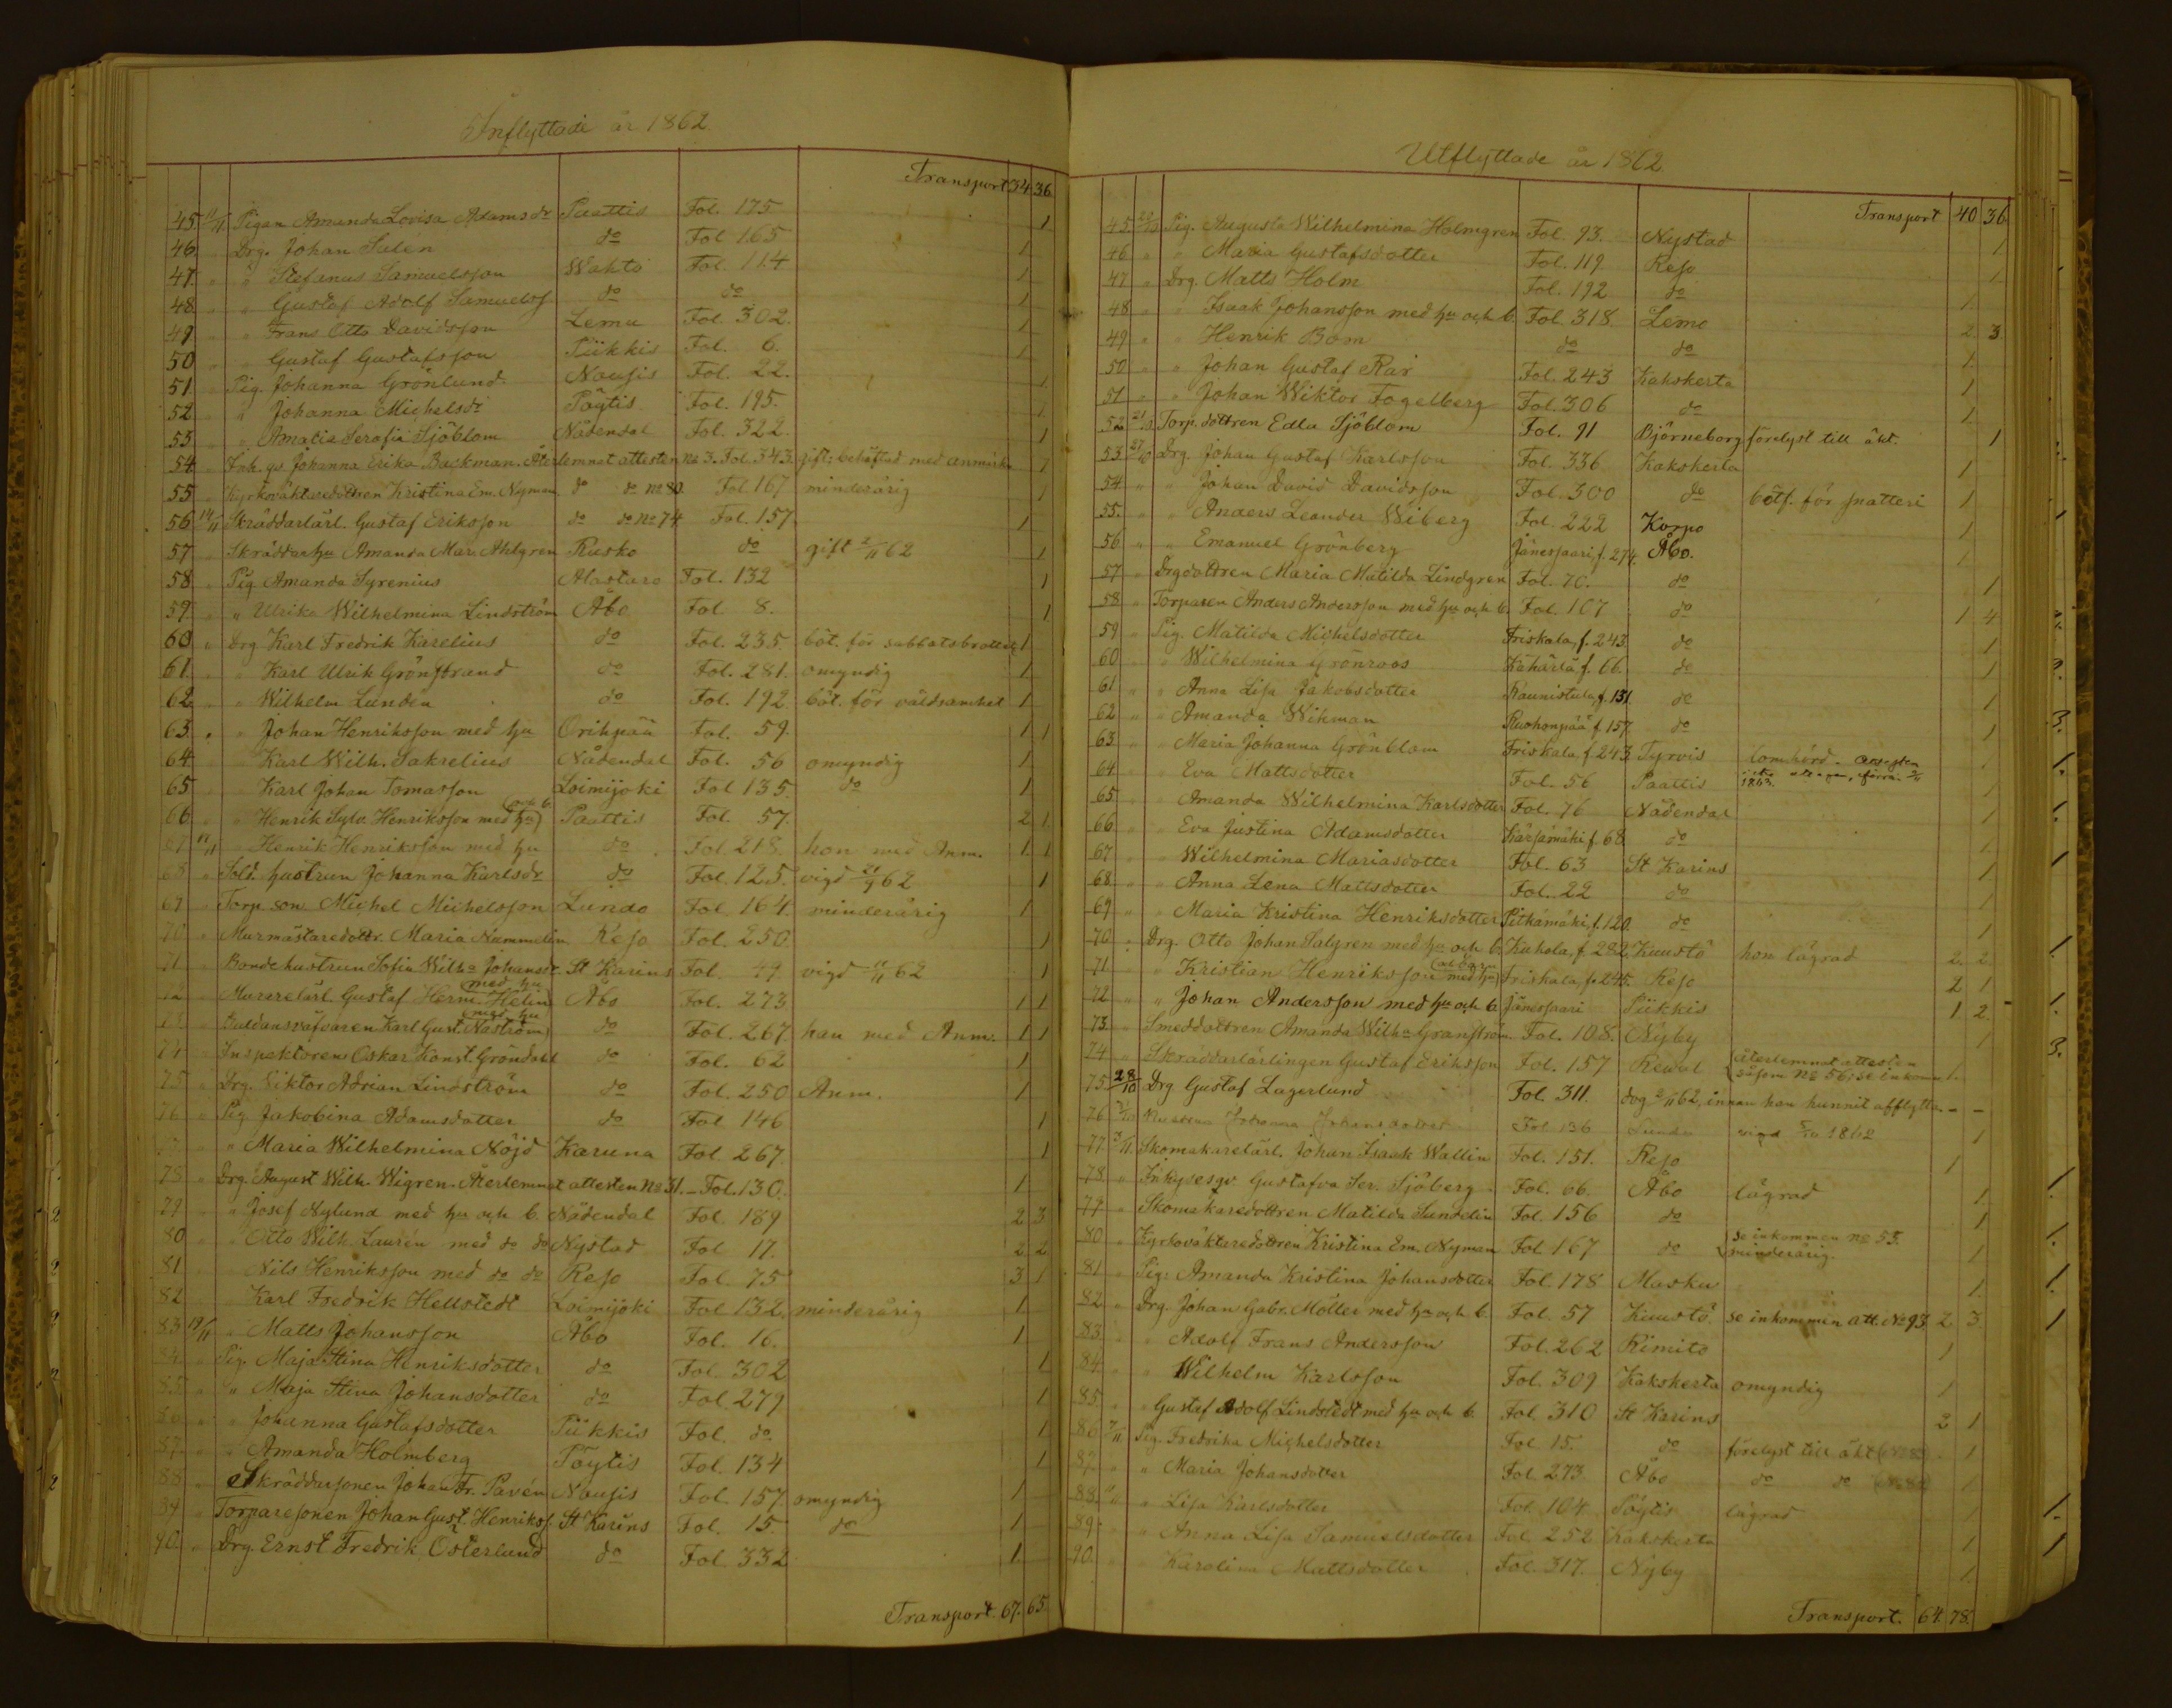 Inflyttade år 1862.
Transport 34. 36.
45 11/11 Pigan Amanda Lovisa Adamsdr Paattis Fol. 175 1
46 " Drg. Johan Salen do Fol 165 1
47. " " Stefanus Samuelsson Wahto Fol. 114 1
48 " " Gustaf Adolf Samuelss do do 1
49 " " Frans Otto Davidsson Lemu Fol. 302. 1
50 " " Gustaf Gustafsson Piikkis Fol. 6. 1
51 " Pig. Johanna Grönlund Nousis Fol. 22. 1
52 " " Johanna Michelsdr Pöytis Fol. 195. 1
53 " " Amalia Serafia Sjöblom Nådendal Fol. 322. 1
54 " Inh. qv. Johanna Erika Backman. Återlemnat attesten No 3. Fol. 343. gift; behäftad med anmärkn 1
55 " Kyrkoväktaredottren Kristina Em. Nyman. do do No 80. Fol. 167 minderårig 1
56 14/11 Skräddarlärl. Gustaf Eriksson do do No 74 Fol. 157 1
57 " Skräddarhu Amanda Mar. Ahlgren Rusko do gift 2/11 62 1
58 " Pig Amanda Syrenius Alastaro Fol. 132 1
59 " " Ulrika Wilhelmina Lindström Åbo Fol. 8. 1
60 " Drg Karl Fredrik Karelius do Fol. 235. böt. för sabbatsbrott 1
61. " " Karl Ulrik Grönstrand do Fol. 281. omyndig 1
62 " " Wilhelm Lunden do Fol. 192. böt. för våldsamhet 1
63 " " Johan Henriksson med hu Orihpää Fol. 59. 1 1
64 " Karl Wilh. Sakrelius Nådendal Fol. 56 omyndig 1
65 " Karl Johan Tomasson Loimijoki Fol 135. do 1
66 " " Henrik Sylv. Henriksson med hu och b. Paattis Fol. 57. 2 1.
67 17/11 " Henrik Henriksson med hu do Fol 218. hon med Anm. 1 1
68 " Sold. hustrun Johanna Karlsdr do Fol. 125. vigd 21/9 62 1
69 " Torp. son Michel Michelsson Lundo Fol. 164. minderårig 1
70 " Murmästaredottr. Maria Nummelin Reso Fol. 250. 1
71 " Bondehustrun Sofia Wilha Johansdr St Karins Fol. 49. vigd 11/11 62 1
72 " Murarelärl. Gustaf Herm. Helin med hu Åbo Fol. 273 1 1
73 " Buldansväfvaren Karl Gust. Naström med hu do Fol. 267. han med Anm. 1 1
74 " Inspektoren Oskar Konst. Gröndahl do Fol. 62 1
75 " Drg. Viktor Adrian Lindström do Fol. 250 Anm. 1
76 " Pig. Jakobina Adamsdotter do Fol 146 1
77 " " Maria Wilhelmina Nöjd Karuna Fol 267. 1
78 " Drg. August Wilh. Wigren. Återlemnat attesten No 31. - Fol. 130. 1
79 " " Josef Nylund med hu och b. Nådendal Fol 189 2 3
80 " " Otto Wilh. Laurén med do do Nystad Fol 17. 2 2
81 " Nils Henriksson med do do Reso Fol. 75 3 1
82 " Karl Fredrik Hellstedt Loimijoki Fol 132. minderårig 1
83 19/11 " Matts Johansson Åbo Fol. 16. 1
84 " Pig. Maja Stina Henriksdotter do Fol. 302 1
85 " " Maja Stina Johansdotter do Fol. 279 1
86 " " Johanna Gustafsdotter Piikkis Fol. do 1
87 " " Amanda Holmberg Pöytis Fol. 134 1
88 " Skräddarsonen Johan Fr. Pavén Nousis Fol. 157. omyndig 1
89 " Torparesonen Johan Gust. Henrikss. St Karins Fol. 15. do 1
90. " Drg. Ernst Fredrik Österlund do Fol. 332 1.
Transport. 67. 65.
Utflyttade år 1862
Transport 40 36.
45 Pig. Augusta Wilhelmina Holmgren Fol. 93. Nystad 1.
46 " " Maria Gustafsdotter Fol. 119 Reso 1.
47 " Drg. Matts Holm Fol. 192 do 1.
48 " " Isaak Johansson med hu och b. Fol. 318. Lemo 2. 3
49 " " Henrik Bom do do 1.
50 " " Johan Gustaf Rar Fol. 243 Kakskerta 1
51 " " Johan Wiktor Fogelberg Fol. 306 do 1.
52 21/10 Torp. dottren Edla Sjöblom Fol. 91 Björneborg förelyst till äkt. 1
53 27/10 Drg. Johan Gustaf Karlsson Fol. 336 Kakskerta 1
54 " " Johan David Davidsson Fol. 300 do bötf. för snatteri 1
55. " " Anders Leander Wiberg Fol. 222 Korpo 1
56 " " Emanuel Grönberg Jänessaari f. 274. Åbo. 1
57 " Drgdottren Maria Matilda Lindgren Fol. 70. do 1
58 " Torparen Anders Andersson med hu och b. Fol. 107 do 1 4
59 " Pig. Matilda Michelsdotter Friskala, f. 243. do 1
60 " " Wilhelmina Grönroos Kähärlä f. 66. do 1
61 " " Anna Lisa Jakobsdotter Raunistula, f. 131 do 1
62 " " Amanda Wikman Ruohonpää f. 157 do 1
63 " " Maria Johanna Grönblom Friskala, f. 243 Tyrvis lomhörd. 1
1863.
64 " Eva Mattsdotter Fol. 56 Paattis 1
65 " Amanda Wilhelmina Karlsdotter Fol. 76 Nådendal 1
66 " Eva Justina Adamsdotter Kärsämäki f. 68. do 1.
67 " Wilhelmina Mariasdotter Fol. 63 St Karins 1
68 " " Anna Lena Mattsdotter Fol. 22 do 1
69 " " Maria Kristina Henriksdotter Pitkämäki, f. 120. do 1
70 " Drg. Otto Johan Salgren med hu och b. Kuhala, f. 282 Kuustö hon lägrad 2. 2.
71 " Kristian Henriksson med hu Friskala, f. 245. Reso 2 1
72 " " Johan Andersson med hu och b. Jänessaari Piikkis 1. 2.
73 " Smeddottren Amanda Wilha Granström Fol. 108. Nyby 1
74 " Skräddarlärlingen Gustaf Eriksson Fol. 157 Rewal återlemnat attesten
såsom No 56; se inkomn 1.
75 28/10 Drg Gustaf Lagerlund Fol. 311. dog 2/11 62, innan han hunnit afflytta. - -
76 Johanna Johansdotter Fol 136 Lundo vigd 1862 1
77 3/11 Skomakarelärl. Johan Isaak Wallin Fol. 151. Reso 1
78 " Inhysesqv. Gustafva Ser. Sjöberg Fol. 66. Åbo lägrad 1.
79 " Skomakaredottren Matilda Sundelin Fol. 156 do 1
80 " Kyrkoväktaredottren Kristina Em. Nyman Fol. 167 do se inkommen No 55.
minderårig. 1
81 " Pig: Amanda Kristina Johansdotter Fol. 178 Masku 1.
82 " Drg. Johan Gabr. Möller med hu och b. Fol. 57 Kuustö. se inkommen att. No 93 2 3.
83 " Adolf Frans Andersson Fol. 262 Rimito 1
84 " " Wilhelm Karlsson Fol. 309 Kakskerta omyndig 1
85 " " Gustaf Adolf Lindstedt med hu och b. Fol. 310 St Karins 2 1
86 Pig. Fredrika Michelsdotter Fol. 15. do förelyst till äkt 1
87 " " Maria Johansdotter Fol. 273 Åbo do do 1.
88. " Lisa Karlsdotter Fol. 104 Pöytis lägrad 1
89. " Anna Lisa Samuelsdotter Fol. 252 Kakskerta 1.
90. Karolina Mattsdotter Fol. 317. Nyby 1.
Transport. 64. 78.